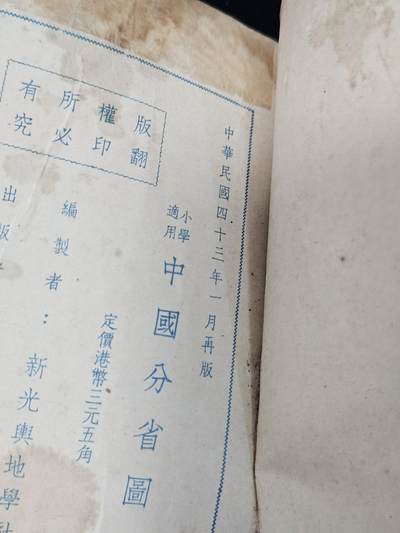 中華民國四十三年一月再版
小學適用
中國分省圖
定價港幣三元五角
版權所有
翻印必究
編製者：新光輿地學社
出版